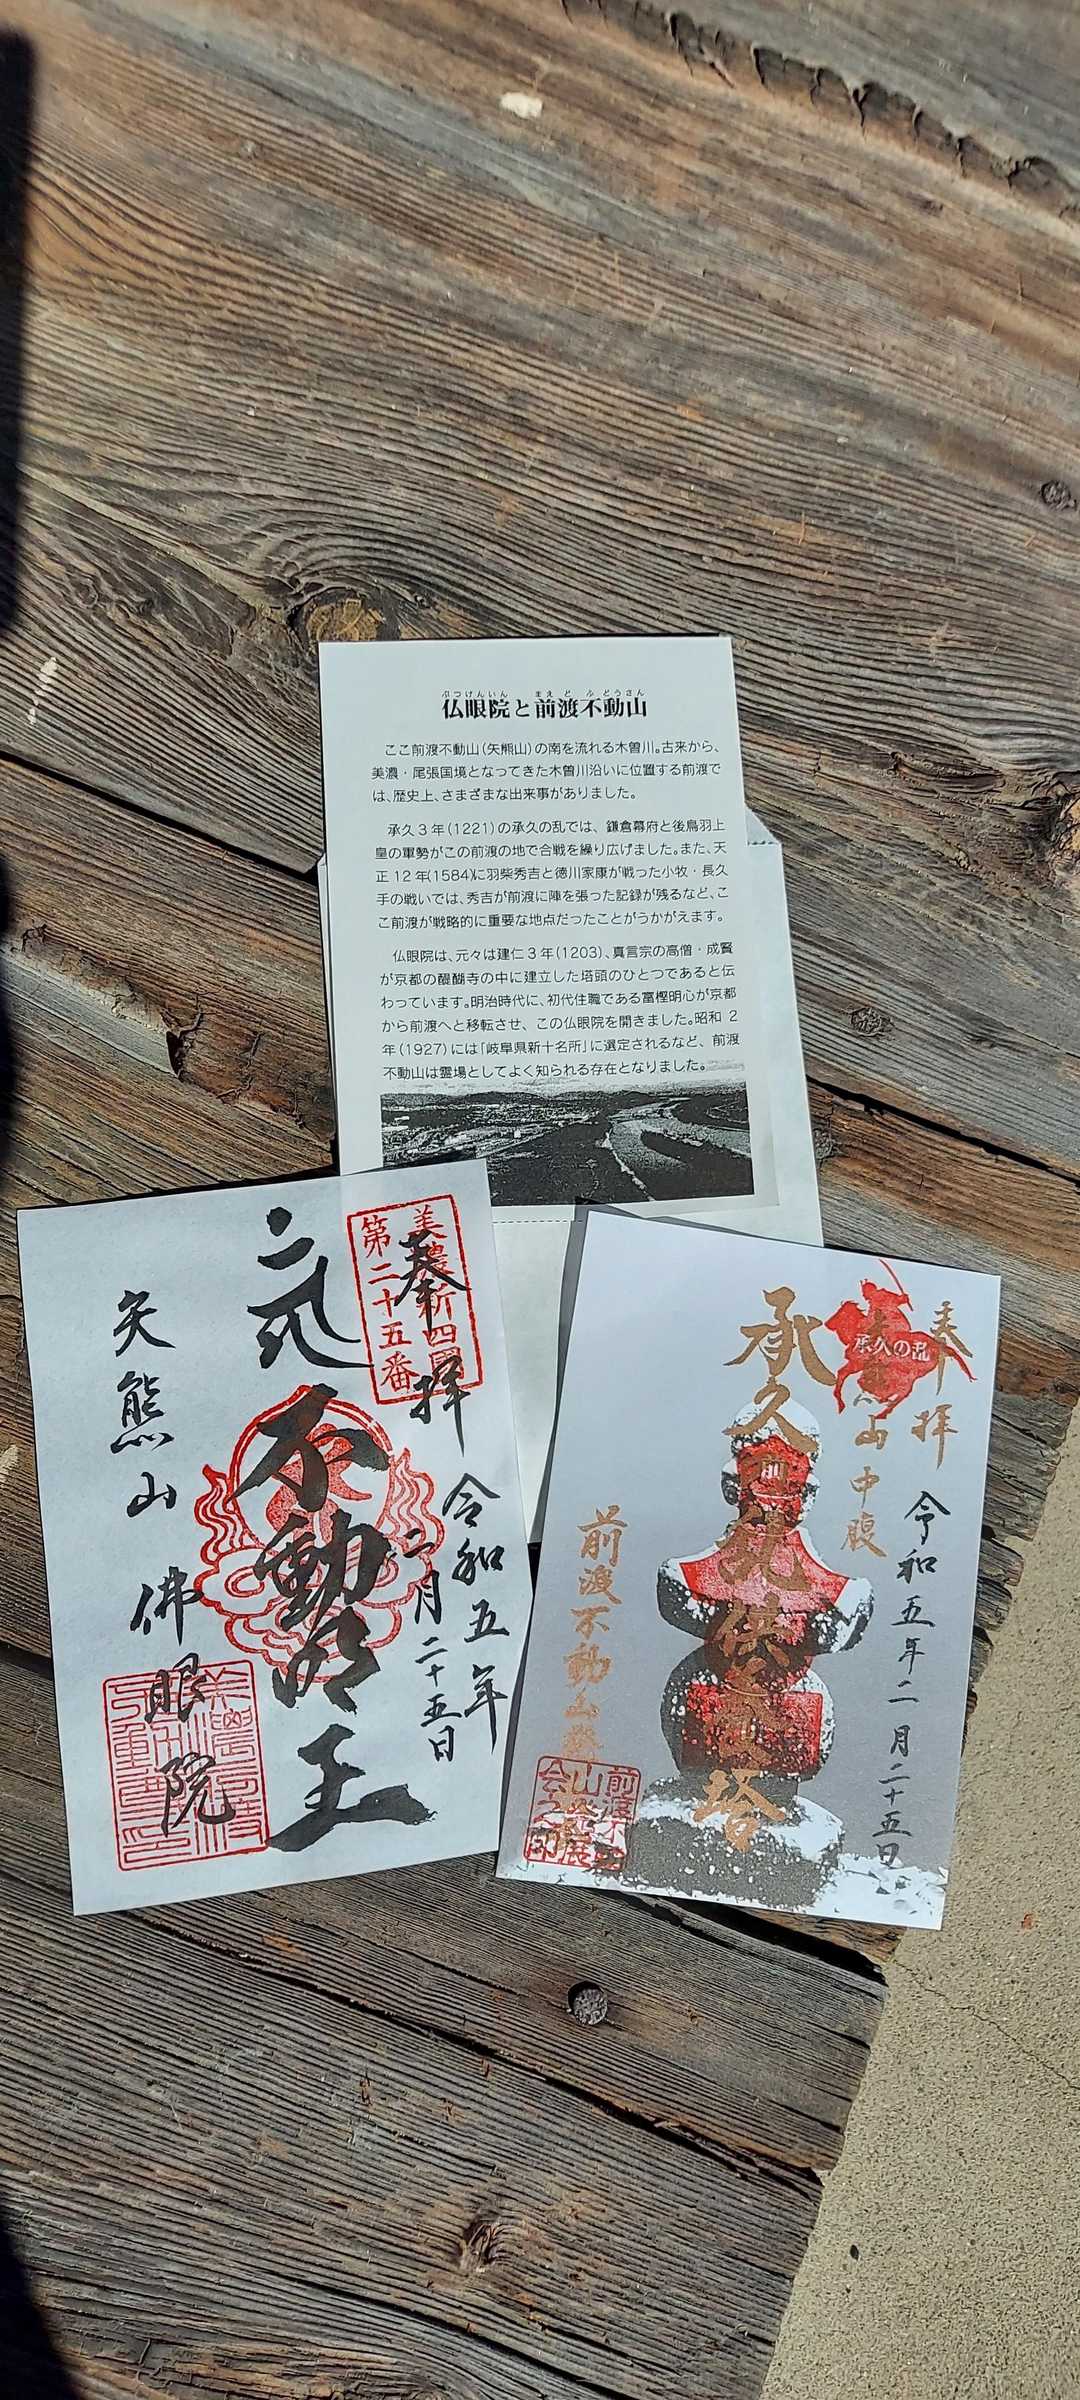 ぶつげんいん まえ ど ふ どうさん
仏眼院と前渡不動山
ここ前渡不動山(矢熊山)の南を流れる木曽川。古来から、
美濃・尾張国境となってきた木曽川沿いに位置する前渡で
は、歴史上、さまざまな出来事がありました。
承久3年(1221)の承久の乱では、鎌倉幕府と後鳥羽上
皇の軍勢がこの前渡の地で合戦を繰り広げました。また、天
正12年(1584)に羽柴秀吉と徳川家康が戦った小牧・長久
手の戦いでは、秀吉が前渡に陣を張った記録が残るなど、こ
こ前渡が戦略的に重要な地点だったことがうかがえます。
仏眼院は、元々は建仁3年(1203)、真言宗の高僧・成賢
が京都の醍醐寺の中に建立した塔頭のひとつであると伝
わっています。明治時代に、初代住職である富樫明心が京都
から前渡へと移転させ、この仏眼院を開きました。昭和2
年(1927)には「岐阜県新十名所」に選定されるなど、前渡
不動山は霊場としてよく知られる存在となりました。
美濃新四國
第二十五番
奉拝
令和五年
二月二十五日
不動明王
矢熊山
佛眼院
奉拝
令和五年二月二十五日
承久の乱
山中腹
承久
供養塔
前渡不動山